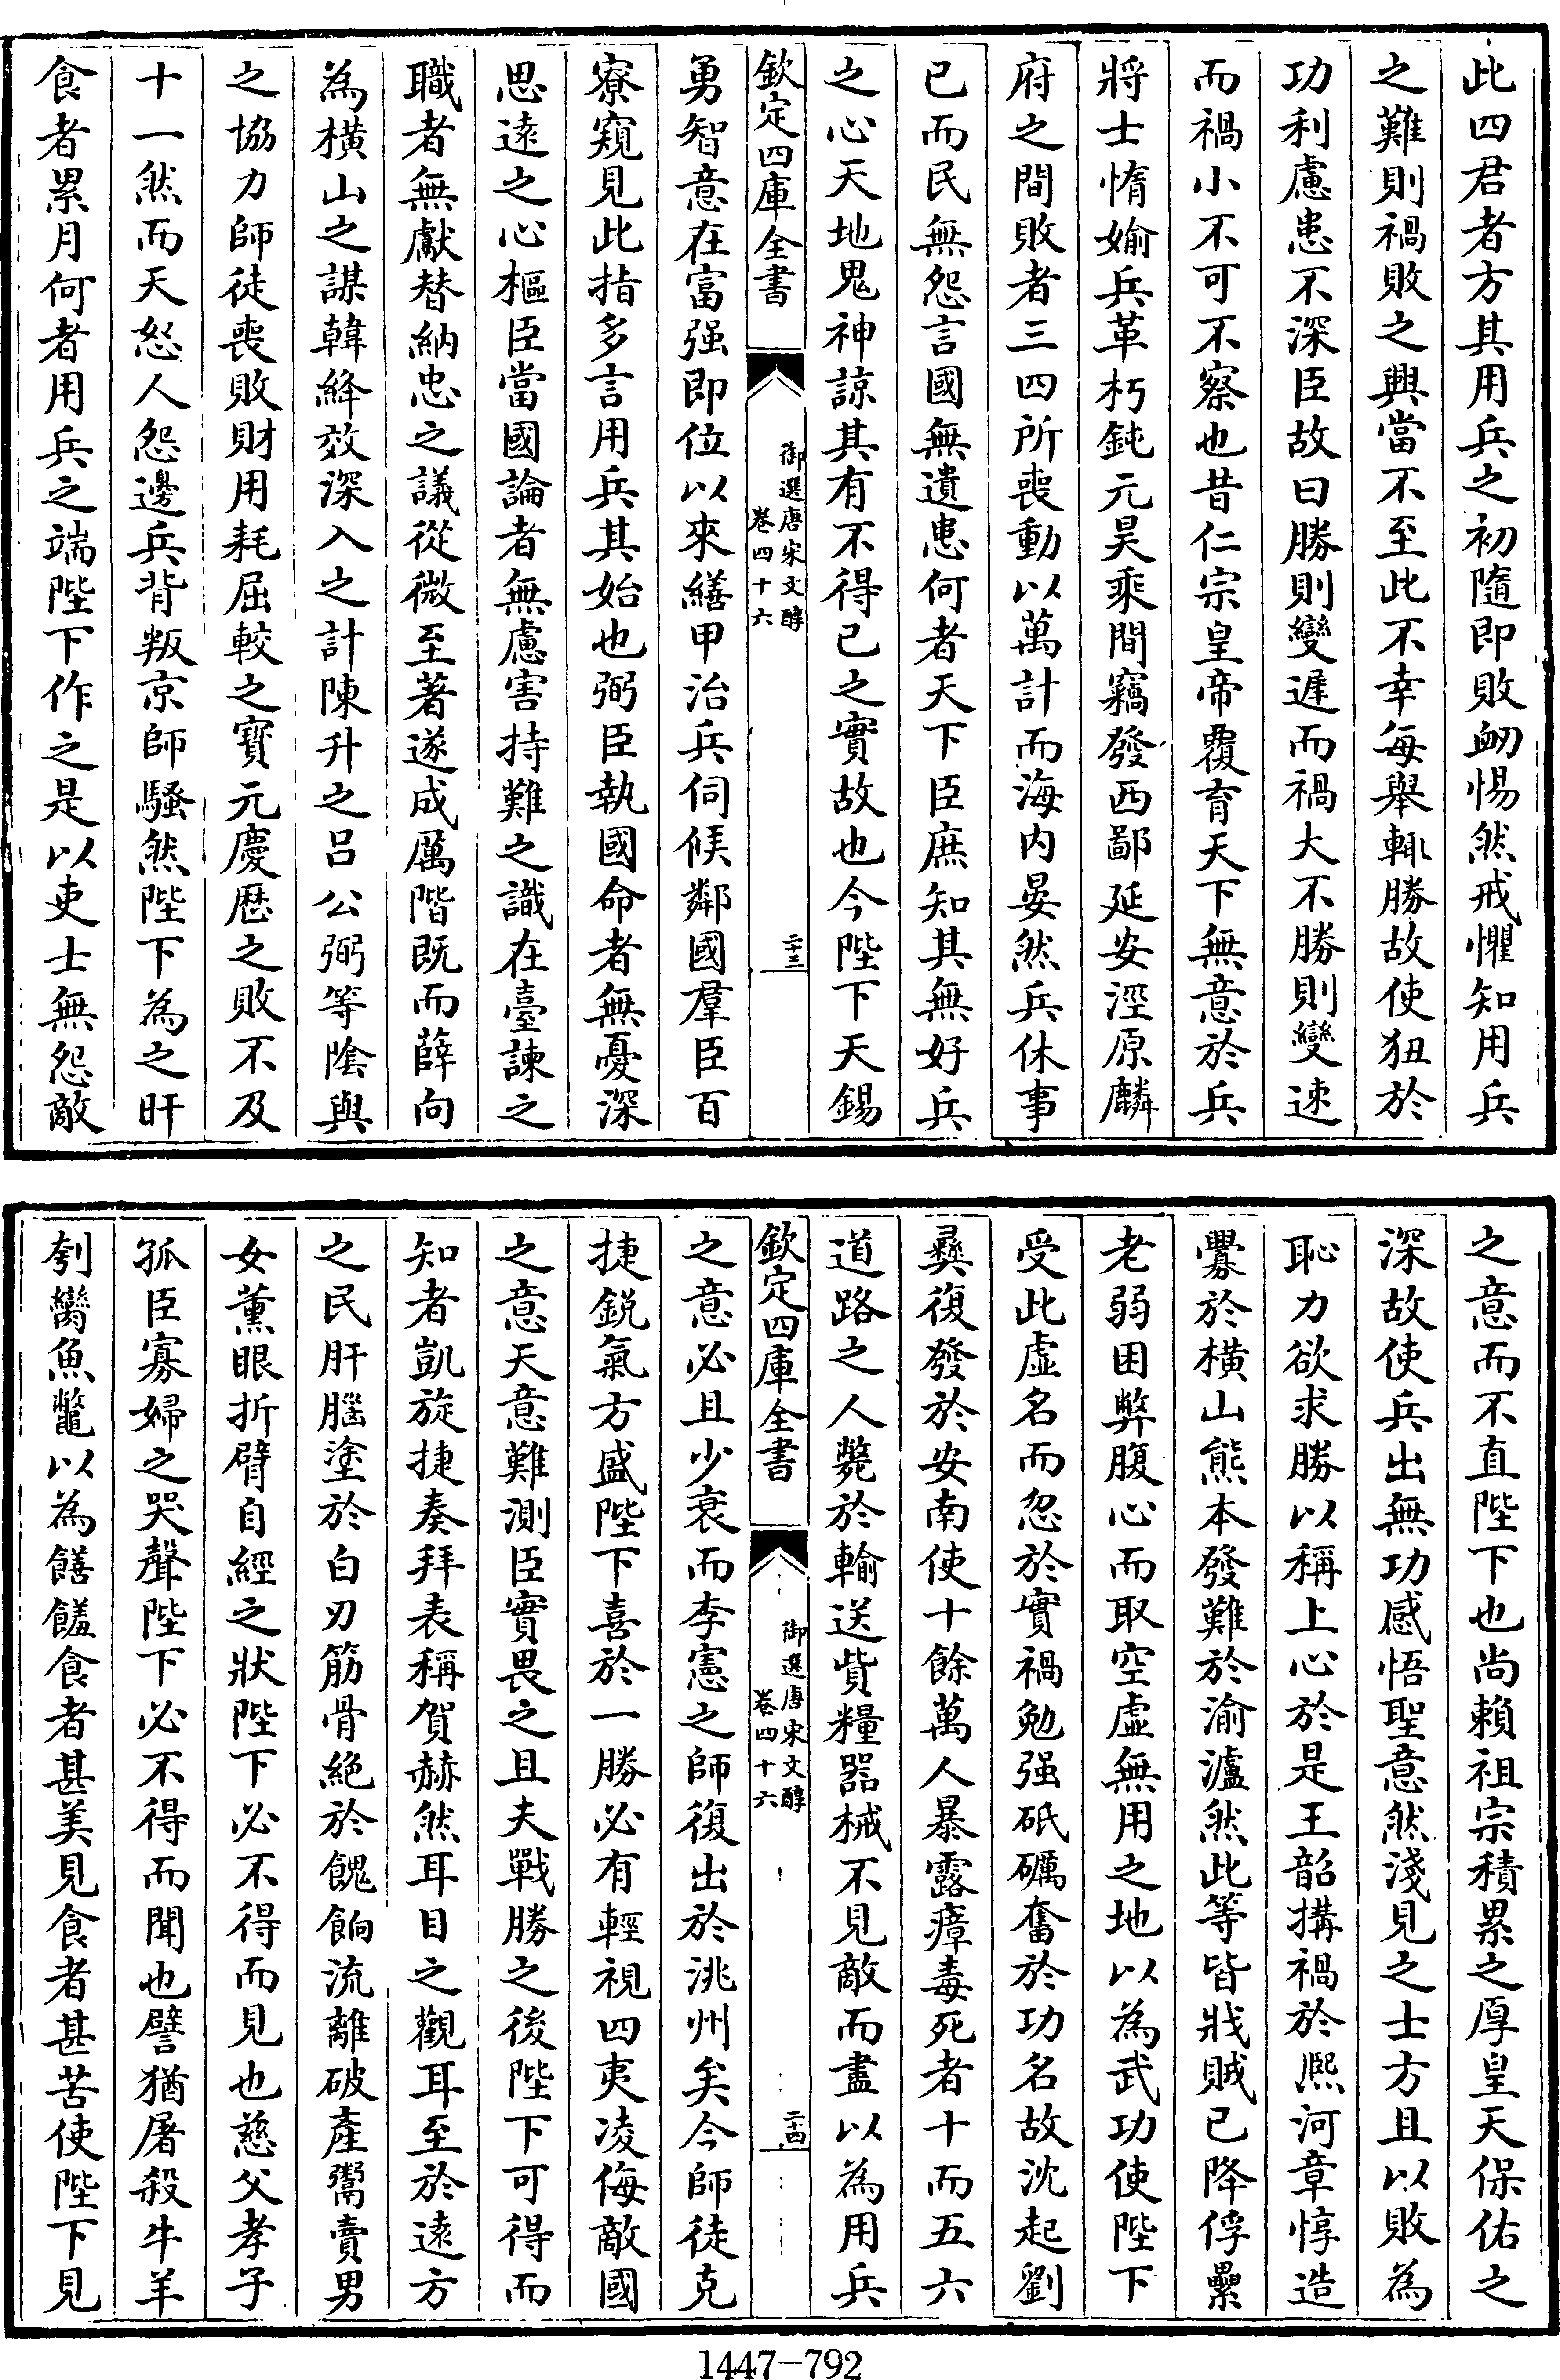 此四君者方其用兵之初隨即敗衂惕然戒懼知用兵
之難則禍敗之興當不至此不幸每舉輒勝故使狃於
功利慮患不深臣故曰勝則變遲而禍大不勝則變速
而禍小不可不察也昔仁宗皇帝覆育天下無意於兵
將士惰媮兵革朽鈍元昊乘間竊發西鄙延安涇原麟
府之間敗者三四所喪動以萬計而海内晏然兵休事
已而民無怨言國無遺患何者天下臣庶知其無好兵
之心天地鬼神諒其有不得已之實故也今陛下天錫
欽定四庫全書
御選唐宋文醇
卷四十六
二十三
勇智意在富强即位以來繕甲治兵伺候鄰國羣臣百
寮窺見此指多言用兵其始也弼臣執國命者無憂深
思遠之心樞臣當國論者無慮害持難之識在臺諫之
職者無獻替納忠之議從微至著遂成厲階既而薛向
為横山之謀韓絳效深入之計陳升之吕公弼等陰與
之協力師徒喪敗財用耗屈較之寶元慶歴之敗不及
十一然而天怒人怨邊兵背叛京師騷然陛下為之旰
食者累月何者用兵之端陛下作之是以吏士無怨敵
之意而不直陛下也尚賴祖宗積累之厚皇天保佑之
深故使兵出無功感悟聖意然淺見之士方且以敗為
恥力欲求勝以稱上心於是王韶搆禍於熙河章惇造
釁於横山熊本發難於渝瀘然此等皆戕賊已降俘纍
老弱困弊腹心而取空虚無用之地以為武功使陛下
受此虚名而忽於實禍勉强砥礪奮於功名故沈起劉
彜復發於安南使十餘萬人暴露瘴毒死者十而五六
道路之人斃於輸送貲糧器械不見敵而盡以為用兵
欽定四庫全書
御選唐宋文醇
卷四十六
二十四
之意必且少衰而李憲之師復出於洮州矣今師徒克
捷鋭氣方盛陛下喜於一勝必有輕視四夷凌侮敵國
之意天意難測臣實畏之且夫戰勝之後陛下可得而
知者凱旋捷奏拜表稱賀赫然耳目之觀耳至於遠方
之民肝腦塗於白刃筋骨絶於餽餉流離破產鬻賣男
女薰眼折臂自經之狀陛下必不得而見也慈父孝子
孤臣寡婦之哭聲陛下必不得而聞也譬猶屠殺牛羊
刳臠魚鼈以為饍饈食者甚美見食者甚苦使陛下見
1447-792